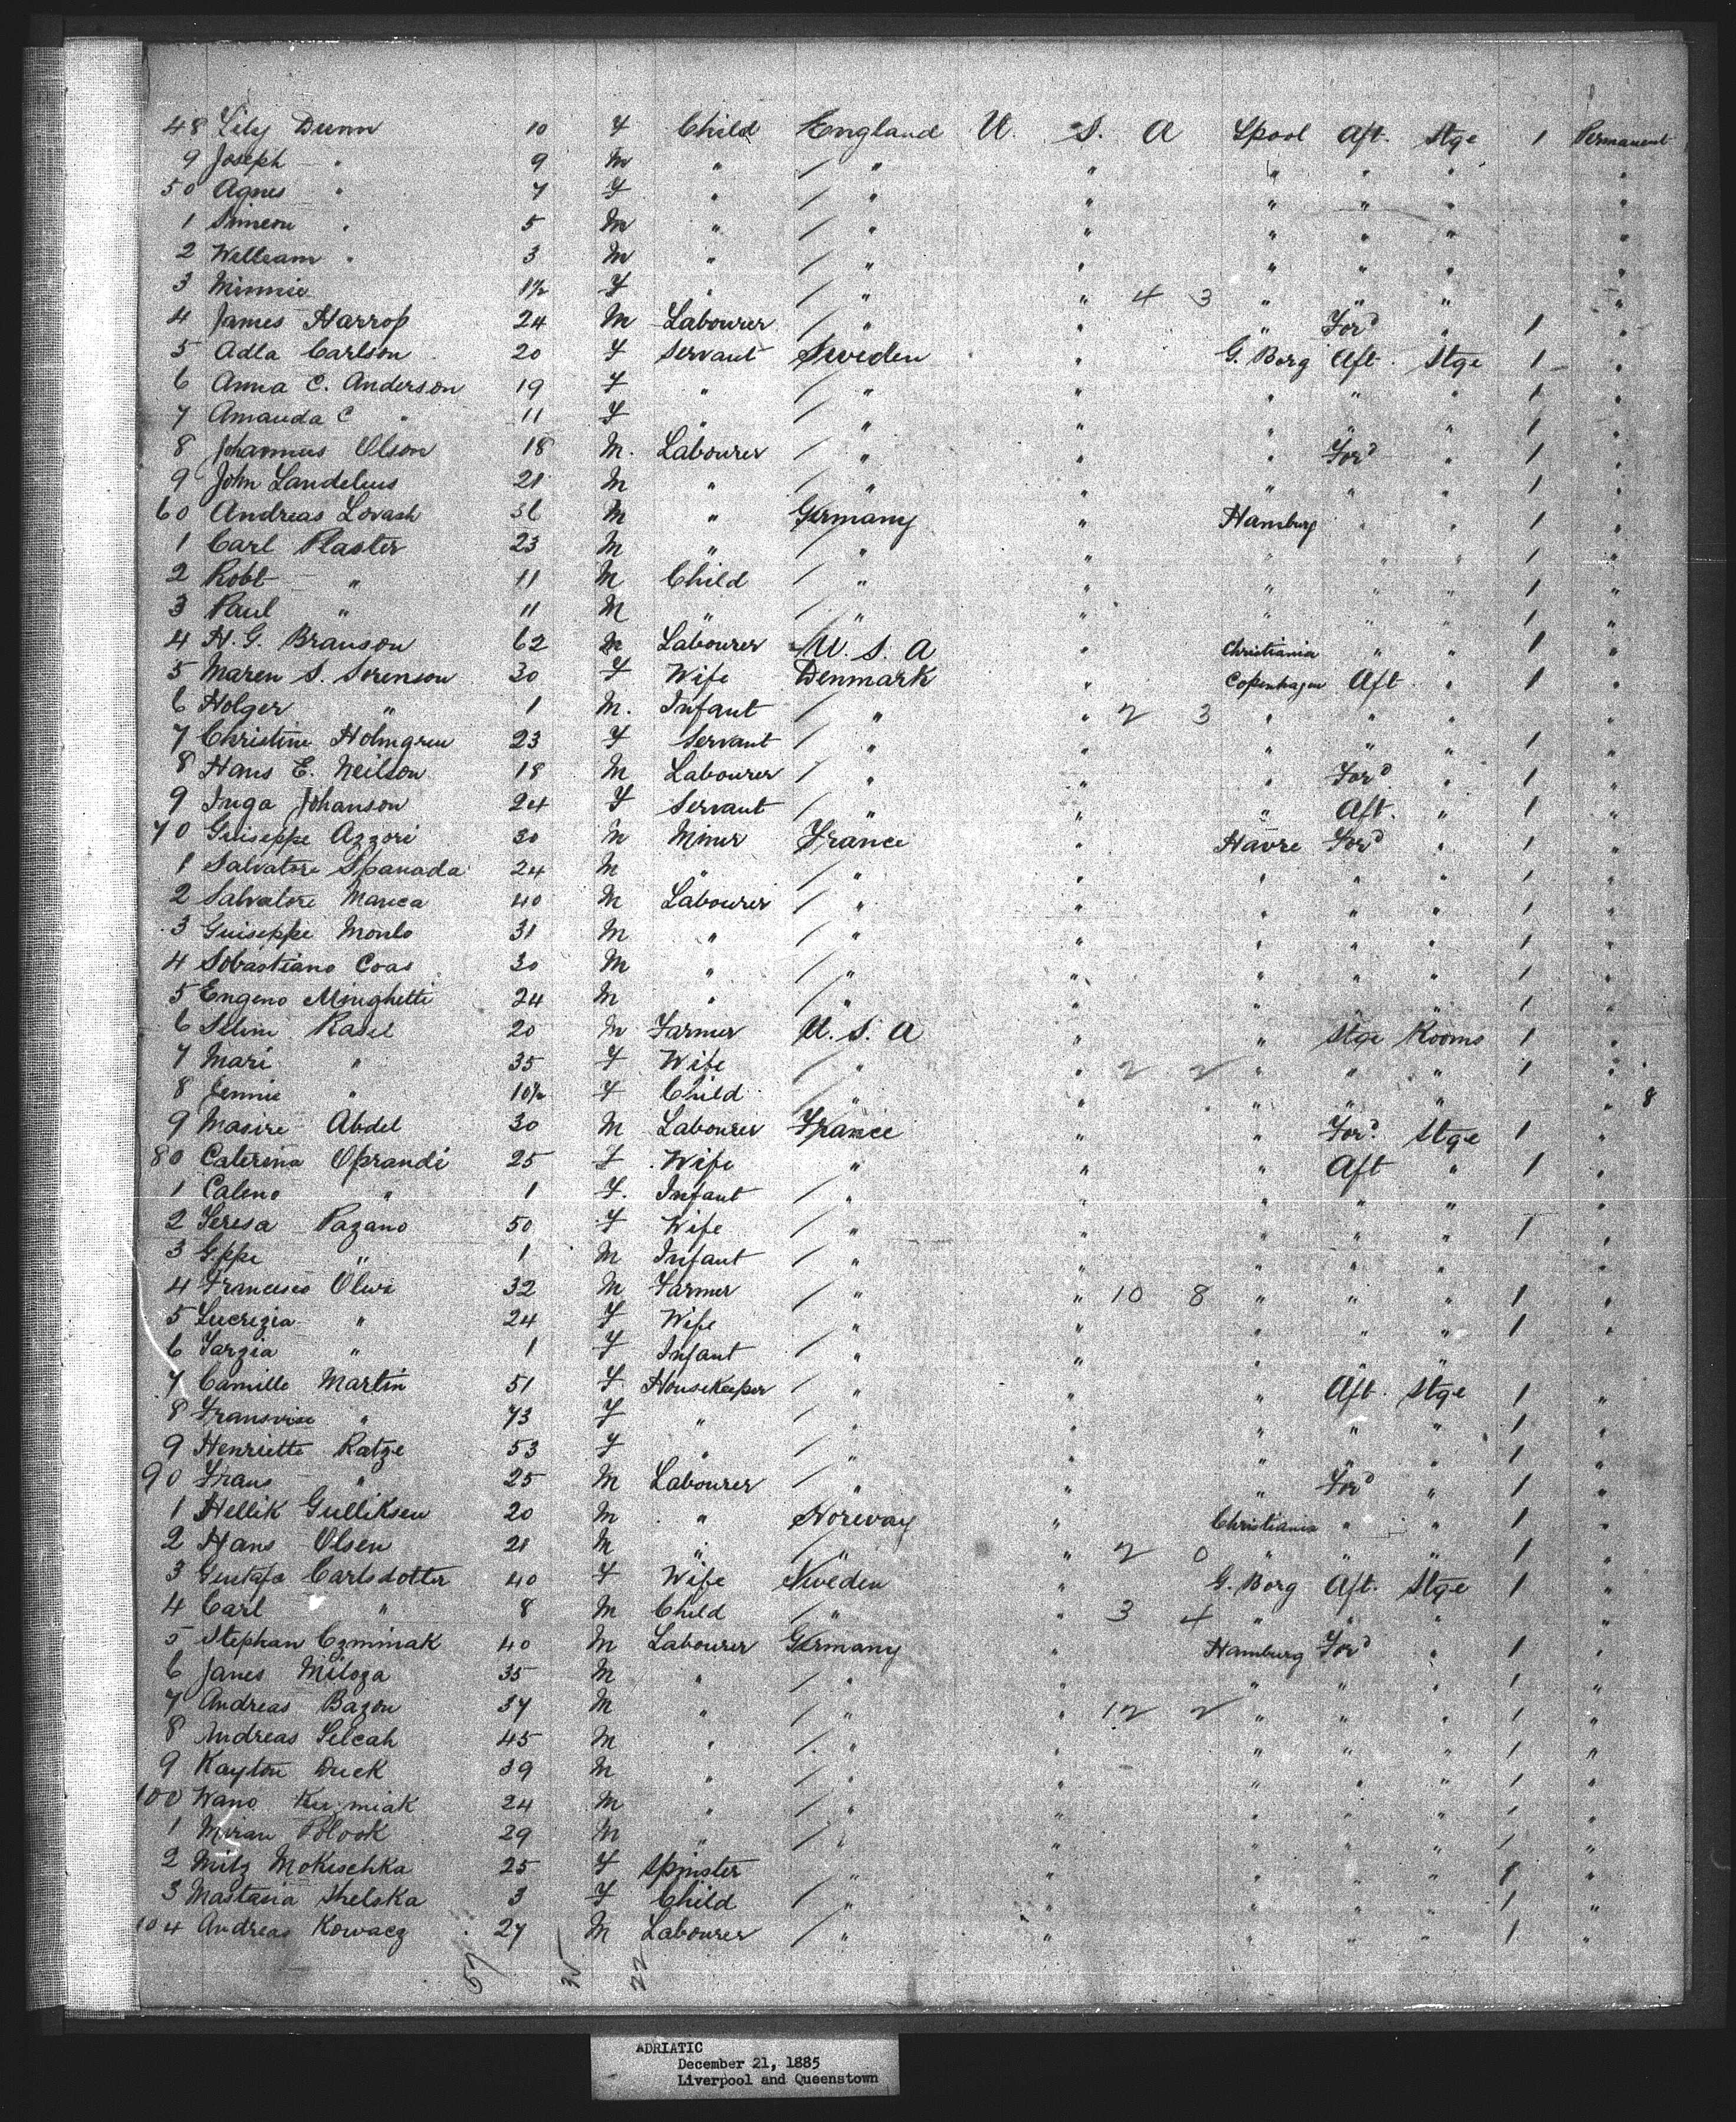 48 Lily Dunn 10 F Child England U. S. A Lpool Aft. Stge 1 Permanent
9 Joseph " 9 M " / " " " " " "
50 Agnes " 7 F " / " " " " " "
1 Simeon " 5 M " / " " " " " "
2 William " 3 M " / " " " " " "
3 Minnie 1½ F " / " " 4 3 " " " "
4 James Harrop 24 M Labourer / " " " For'd " 1 "
5 Adla Carlson 20 F Servant Sweden " G. Borg Aft. Stge 1 "
6 Anna C. Anderson 19 F " / " " " " " 1 "
7 Amanda C " 11 F " / " " " " " 1 "
8 Johannus Olson 18 M. Labourer / " " " For'd " 1 "
9 John Landelius 21 M " / " " " " " 1 "
60 Andreas Lovash 36 M " Germany " Hamburg " " 1 "
1 Carl Plaster 23 M " / " " " " " 1 "
2 Robt " 11 M Child / " " " " " 1 "
3 Paul " 11 M " / " " " " " 1 "
4 H. G. Branson 62 M Labourer U. S. A " Christiania " " 1 "
5 Maren S. Sorenson 30 F Wife Denmark " Copenhagen Aft " 1 "
6 Holger " 1 M. Infant / " " 2 3 " " " "
7 Christine Holmgren 23 F Servant / " " " " " 1 "
8 Hans E. Neilson 18 M Labourer / " " " For'd " 1 "
9 Inga Johanson 24 F Servant / " " " Aft. " 1 "
70 Guiseppe Azzori 30 M Miner France " Havre For'd " 1 "
1 Salvatore Spanada 24 M " / " " " " " 1 "
2 Salvatore Manca 40 M Labourer / " " " " " 1 "
3 Guiseppe Monlo 31 M " / " " " " " 1 "
4 Sobastiano Coas 30 M " / " " " " " 1 "
5 Engeno Minghetti 24 M " / " " " " " 1 "
6 Selim Rasel 20 M Farmer U. S. A " " Stge Rooms 1 "
7 Mari " 35 F Wife / " " 2 2 " " " 1 "
8 Jennie " 10½ F Child / " " " " " " 8
9 Masire Abdel 30 M Labourer France " " For'd Stge 1 "
80 Caterina Oprandi 25 F Wife " " " Aft " 1 "
1 Caleno " 1 F. Infant / " " " " " "
2 Teresa Pazano 50 F Wife / " " " " " 1 "
3 G.ppe " 1 M Infant / " " " " " "
4 Francesco Olwi 32 M Farmer / " " 10 8 " " " 1 "
5 Lucrizia " 24 F Wife / " " " " " 1 "
6 Tarzia " 1 F Infant / " " " " "
7 Camille Martin 51 F Housekeeper / " " " Aft. Stge 1 "
8 " 73 F " / " " " " " 1 "
9 Henriette Ratze 53 F " / " " " " " 1 "
90 Frans " 25 M Labourer / " " " For'd " 1 "
1 Hellik Gulliksen 20 M " Norway " Christiania " " 1 "
2 Hans Olsen 21 M " / " " 2 0 " " " 1 "
3 Gustafa Carlsdotter 40 F Wife Sweden " G. Borg Aft. Stge 1 "
4 Carl " 8 M Child / " " 3 4 " " " "
5 Stephan Czminiak 40 M Labourer Germany " Hamburg For'd " 1 "
6 Janes Miloza 35 M " / " " " " " 1 "
7 Andreas Bazon 37 M " / " " 12 2 " " " 1 "
8 Andreas Selcah 45 M " / " " " " " 1 "
9 Kayton Duck 39 M " / " " " " " 1 "
100 Wano 24 M " / " " " " " 1 "
1 Miran Polook 29 M " / " " " " " 1 "
2 Mitz Mokischka 25 F Spinster " " " " " 1 "
3 Mastasia Shelska 3 F Child / " " " " " 1 "
104 Andreas Kowacz 27 M Labourer / " " " " " 1 "
57 35 22
ADRIATIC
December 21, 1885
Liverpool and Queenstown